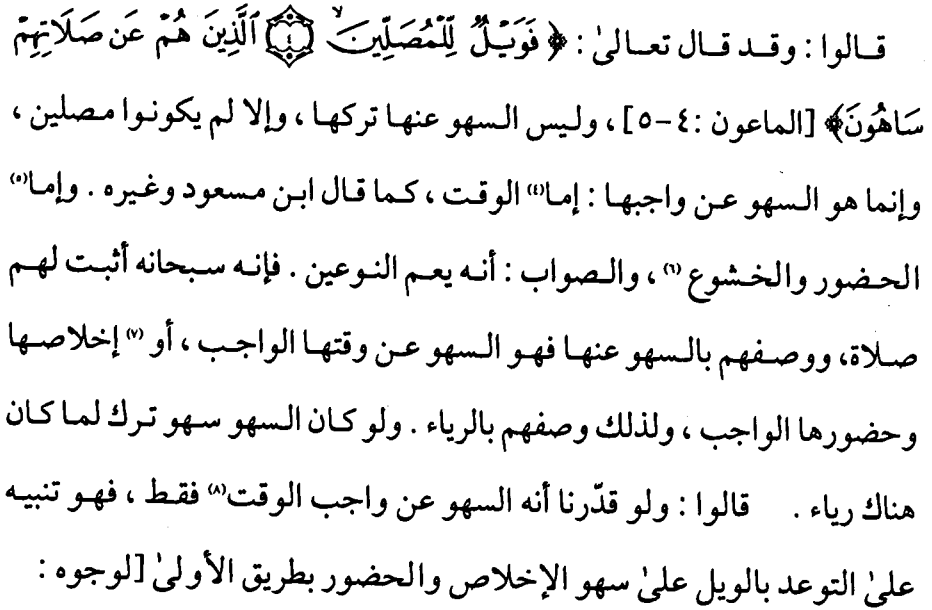 قالوا : وقد قال تعالىٰ : ﴿ فَوَيْلٌ لِّلْمُصَلِّينَ ۙ ٤ ٱلَّذِينَ هُمْ عَن صَلَاتِهِمْ
سَاهُونَ﴾ [الماعون :٤-٥] ، وليس السهو عنها تركها ، وإلا لم يكونوا مصلين ،
وإنما هو السهو عن واجبها : إما(٤) الوقت ، كما قال ابن مسعود وغيره . وإما(٥)
الحضور والخشوع (٦) ، والصواب : أنه يعم النوعين . فإنه سبحانه أثبت لهم
صلاة، ووصفهم بالسهو عنها فهو السهو عن وقتها الواجب ، أو (٧) إخلاصها
وحضورها الواجب ، ولذلك وصفهم بالرياء . ولو كان السهو سهو ترك لما كان
هناك رياء . قالوا : ولو قدّرنا أنه السهو عن واجب الوقت(٨) فقط ، فهو تنبيه
علىٰ التوعد بالويل علىٰ سهو الإخلاص والحضور بطريق الأولىٰ [لوجوه :